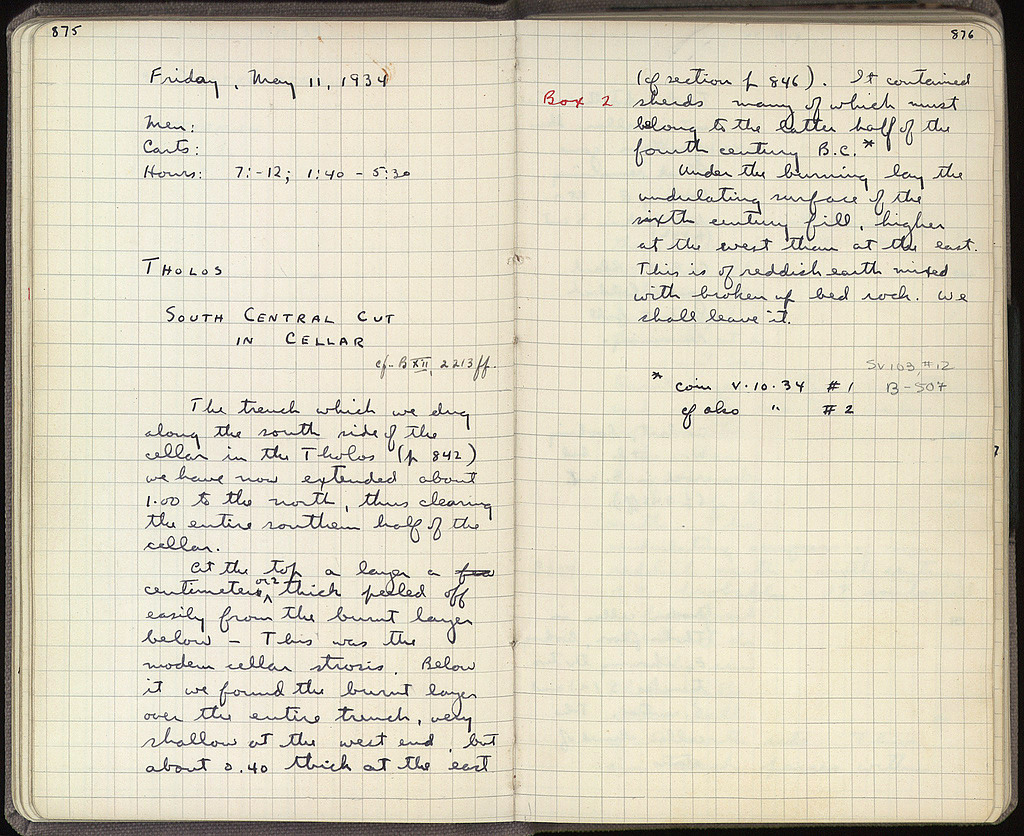 875
Friday, May 11, 1934
Men:
Carts:
Hours: 7:-12; 1:40 - 5:30
THOLOS
SOUTH CENTRAL CUT
IN CELLAR
cf. B XII, 2213 ff.
The trench which we dug
along the south side of the
cellar in the Tholos (p 842)
we have now extended about
1.00 to the north, thus clearing
the entire southern half of the
cellar.
At the top a layer a few
centimeters or 2 thick peeled off
easily from the burnt layer
below - This was the
modern cellar strosis. Below
it we found the burnt layer
over the entire trench, very
shallow at the west end, but
about 0.40 thick at the east
876
(cf section p 846). It contained
Box 2 sherds many of which must
belong to the latter half of the
fourth century B.C.*
Under the burning lay the
undulating surface of the
sixth century fill, higher
at the west than at the east.
This is of reddish earth mixed
with broken up bed rock. We
shall leave it.
SV103, #12
* coin V.10.34 #1 B-507
cf also " #2